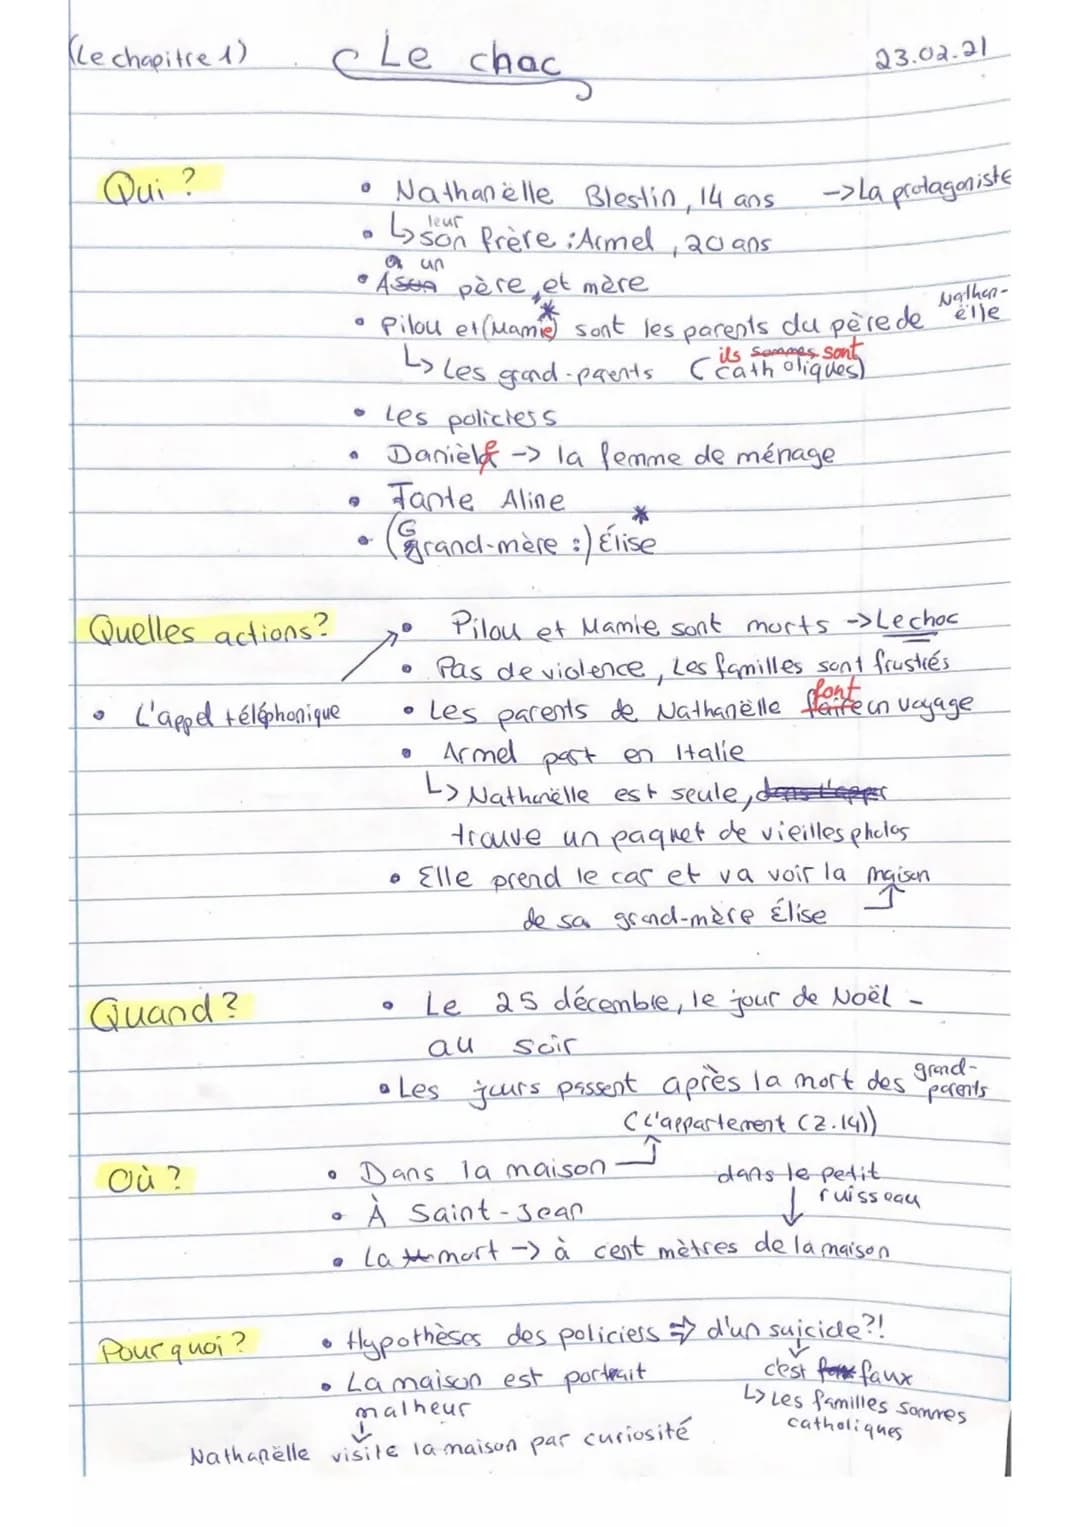 (Le chapitre 1) Le choc 23.02.21
Qui ?
• Nathanëlle Blestin, 14 ans -> La protagoniste
leur
• ↳ son frère : Armel, 20 ans
a un
• A son père, et mère
• Pilou et (Mamie)* sont les parents du père de Nathan-
ëlle
ils sommes sont
↳ Les grand-parents (catholiques)
• Les policiers
• Danièle -> la femme de ménage
• Tante Aline
• (Grand-mère :) Élise*
Quelles actions?
• L'appel téléphonique
• Pilou et Mamie sont morts -> Le choc
• Pas de violence, Les familles sont frustrés
font
• Les parents de Nathanëlle faire un voyage
• Armel part en Italie
↳ Nathanëlle est seule, dans l'apper
trouve un paquet de vieilles photos
• Elle prend le car et va voir la maison
de sa grand-mère Élise
Quand ?
• Le 25 décembre, le jour de Noël -
au soir
• Les jours passent après la mort des grand-
parents
(L'appartement (Z.14))
Où ?
• Dans la maison
dans le petit
ruisseau
• À Saint-Jean
• La mort -> à cent mètres de la maison
Pourquoi ?
• Hypothèses des policiers => d'un suicide?!
c'est faux
↳ Les familles sommes
catholiques
• La maison est portrait
malheur
Nathanëlle visite la maison par curiosité